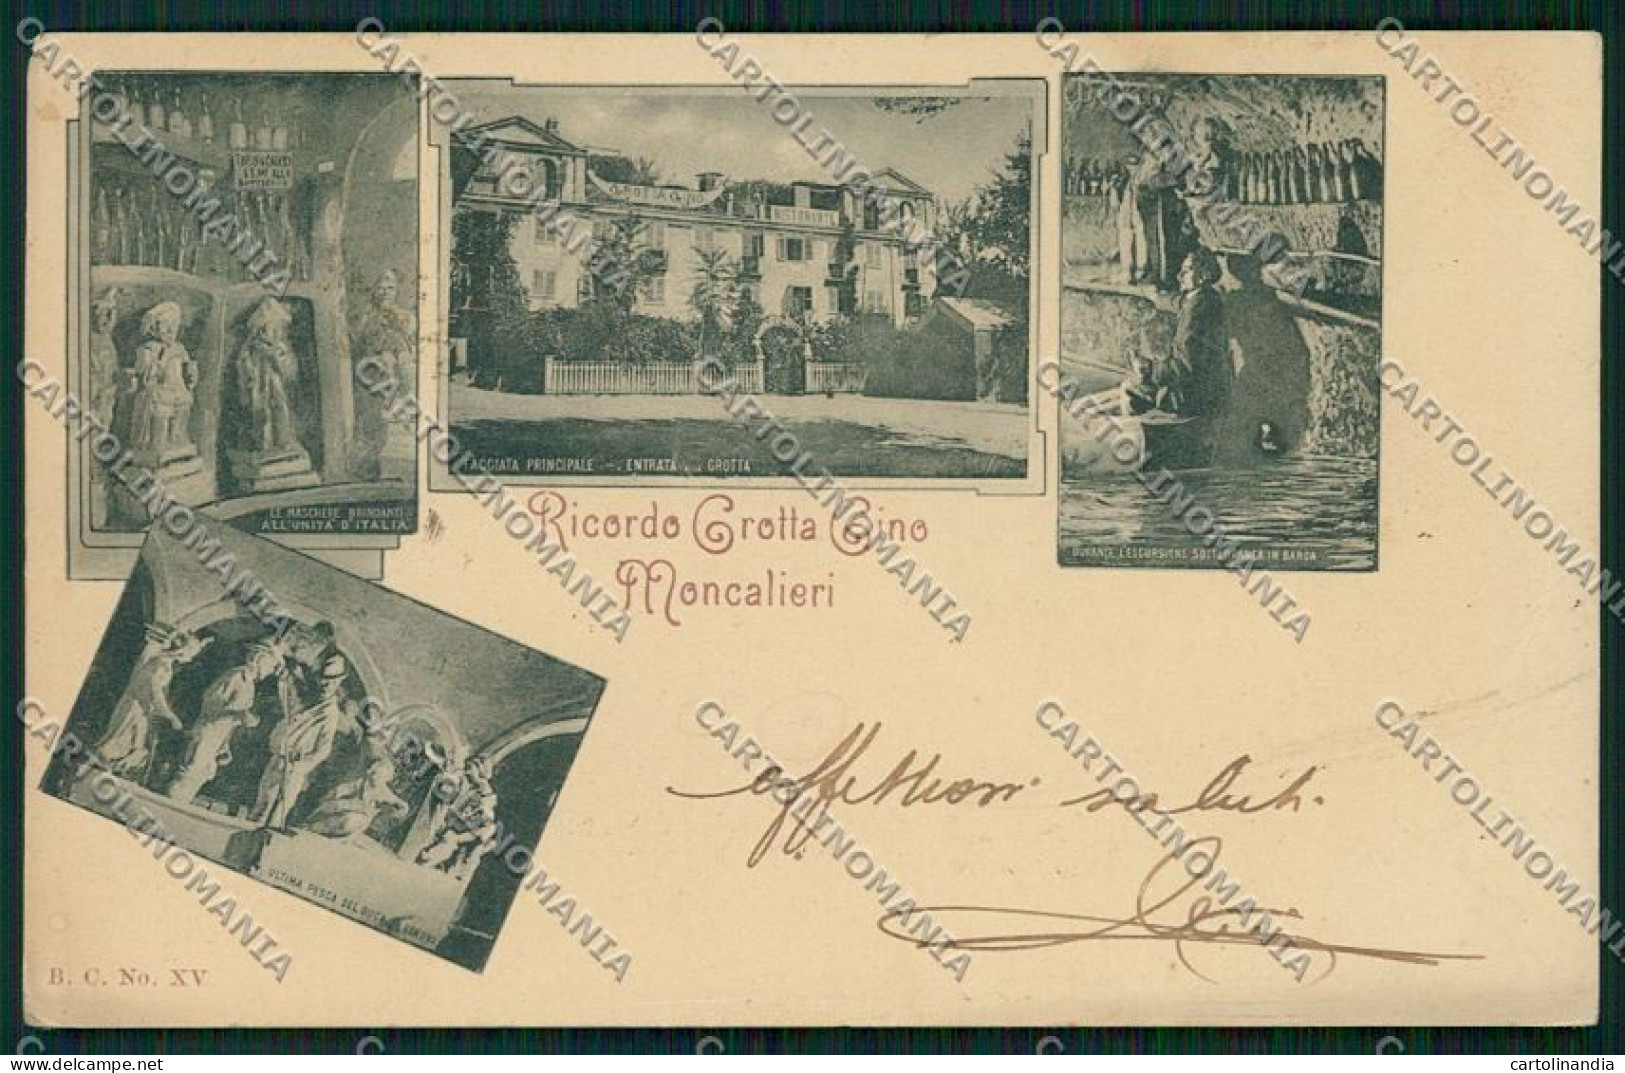 LE MASCHERE BRINDANTI
ALL'UNITÀ D'ITALIA
GROTTA GINO
RISTORANTE
FACCIATA PRINCIPALE - ENTRATA GROTTA
DURANTE L'ESCURSIONE SOTTERRANEA IN BARCA
Ricordo Grotta Gino
Moncalieri
ULTIMA PESCA DEL DUCA
affettuosi saluti.
B. C. No. XV
CARTOLINOMANIA
cartolinandia